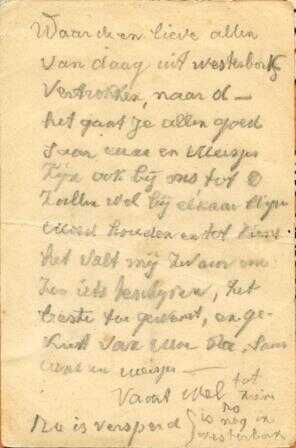 Waarde en lieve allen
van daag uit westerbork
vertrokken, naar d—
het gaat je allen goed
en meisjes
zijn ook bij ons, tot
zullen wel bij elkaar blijven
moed houden en tot ziens
het valt mij zwaar om
zoo iets te schrijven, het
beste toe gewenst, en ge-
kust van
en meisjes —
Vaart wel tot
zien
No is versperd is nog in
westerbork